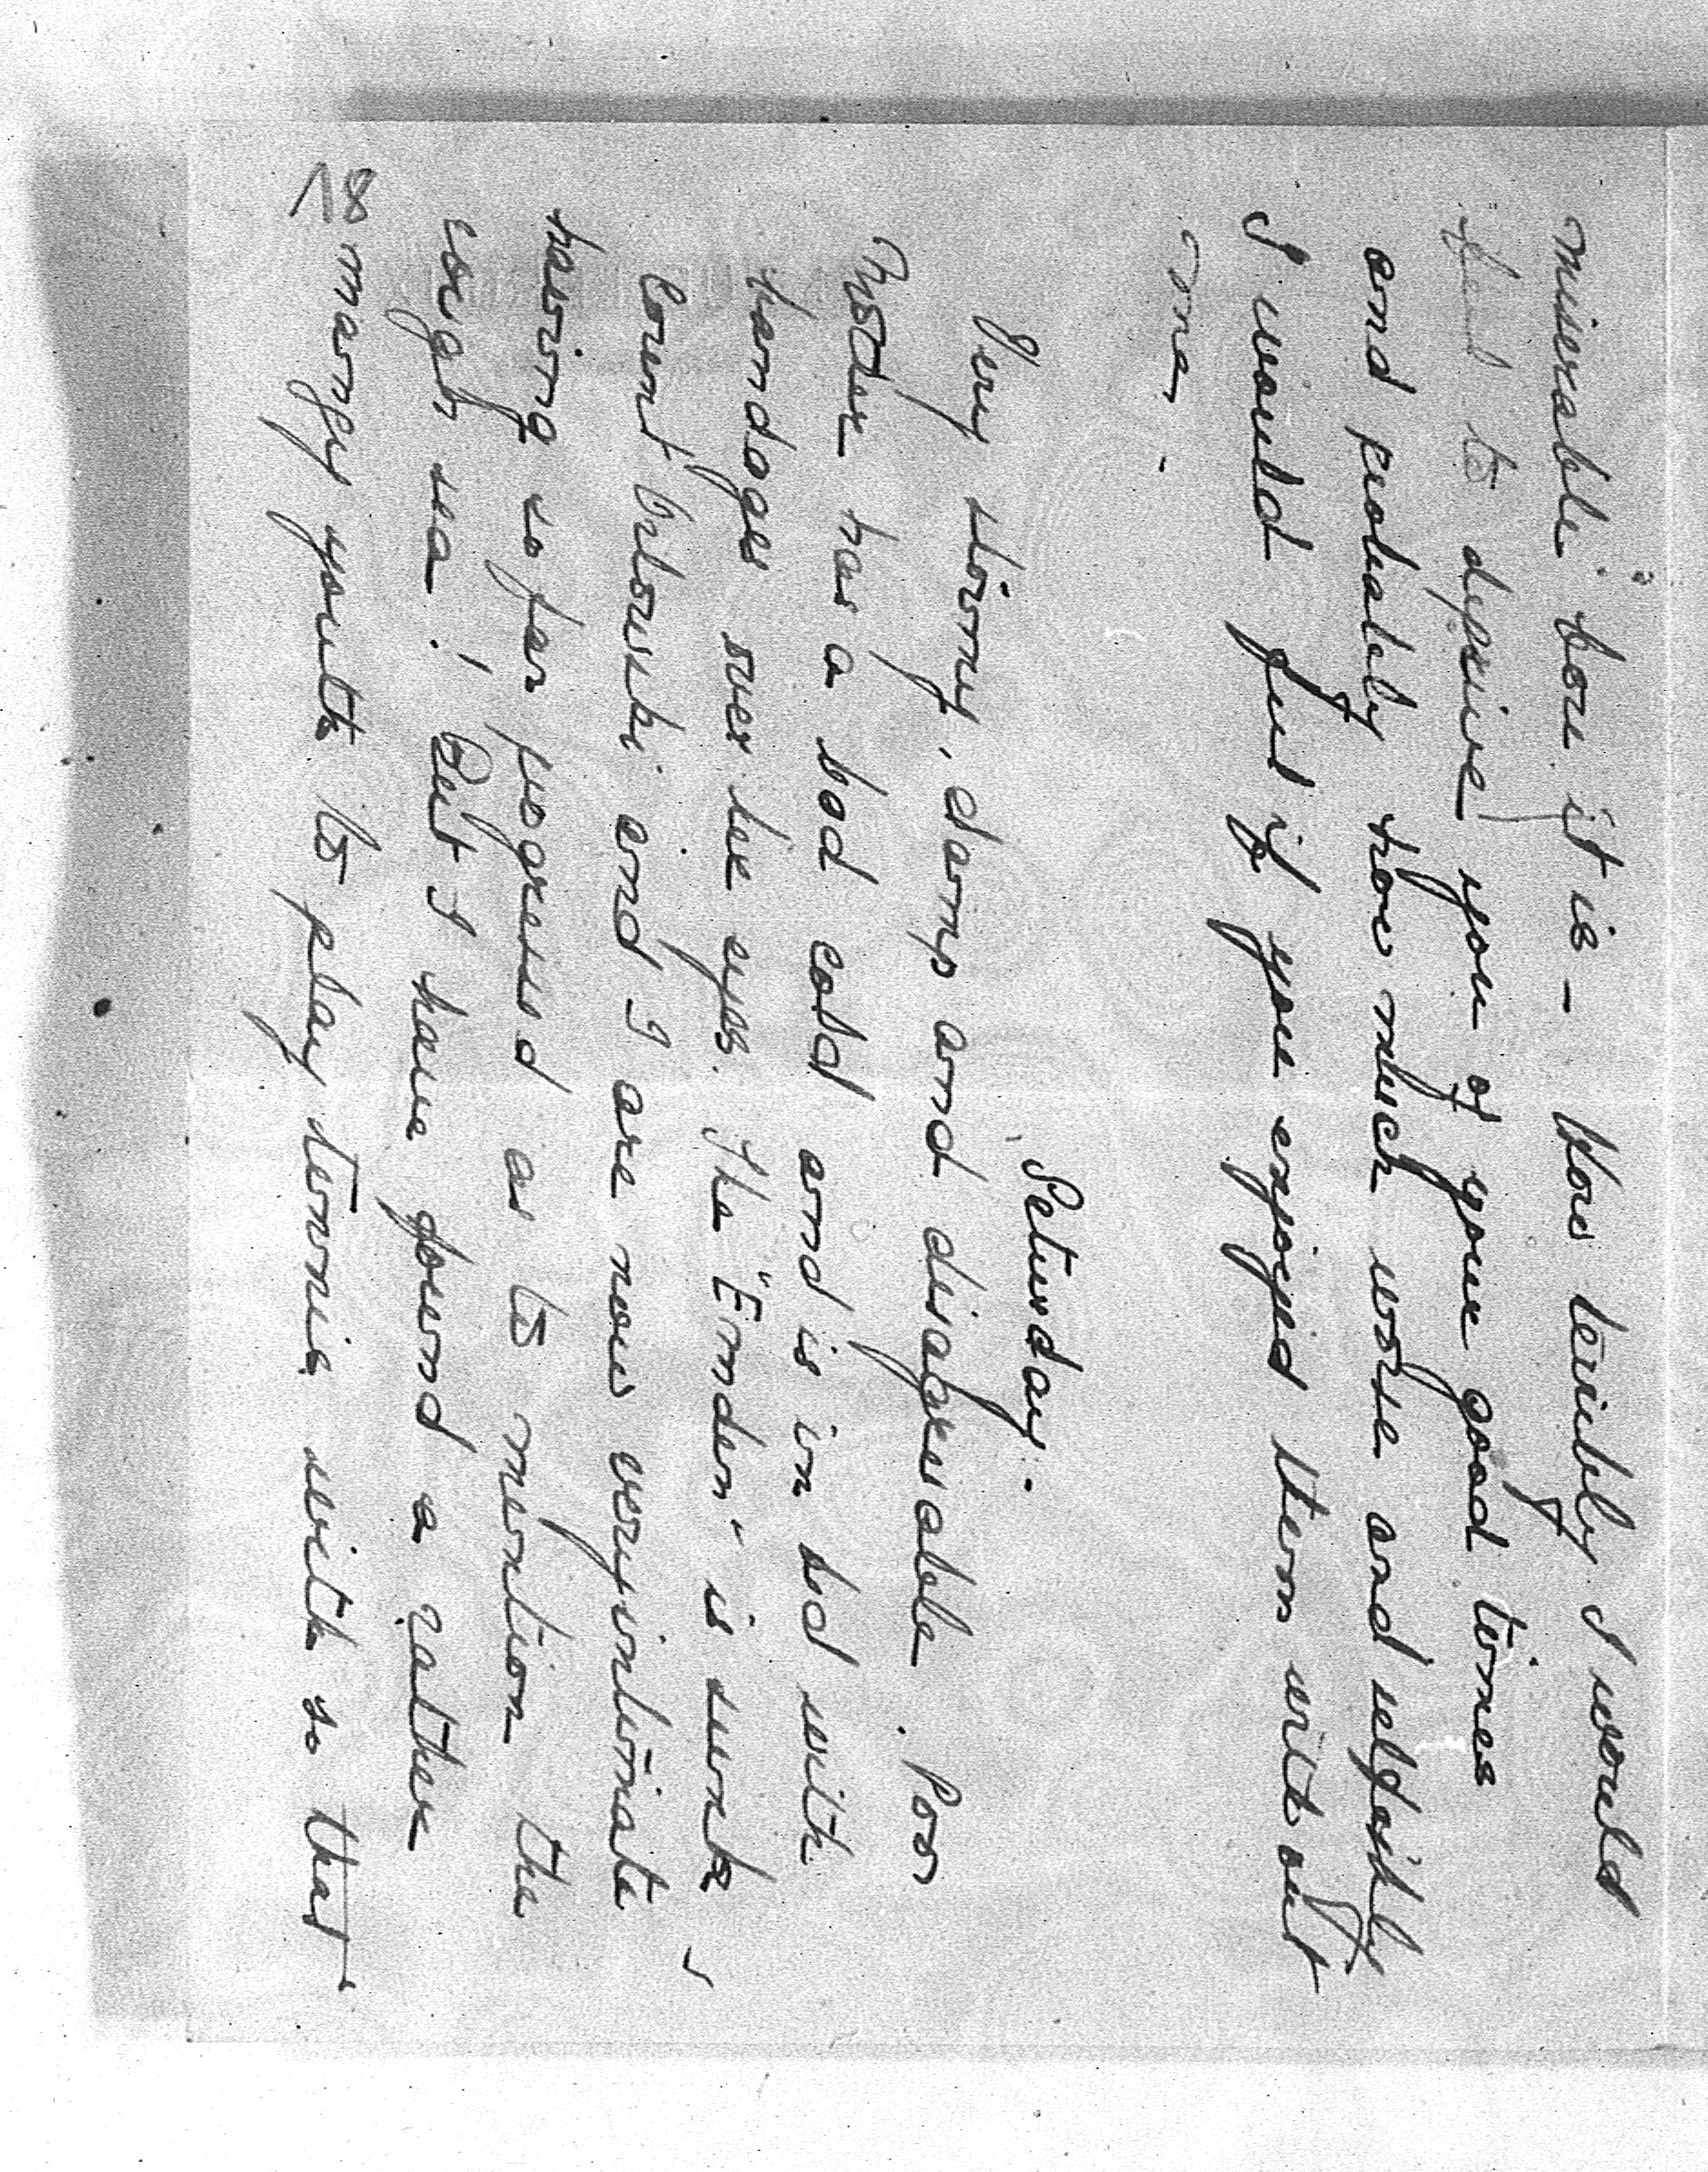 miserable bore it is - How terribly I would
feel to deprive you of your good times
and probably how much worse and selfishly
I would feel if you enjoyed them without
me -
Saturday.
Very stormy, damp and disagreeable. Poor
Mother has a bad cold and is in bed with
bandages over her eyes. The "Emden" is sunk -
Count and I are now very intimate
having so far progressed as to mention the
rough sea! But I have found a rather
mangy youth to play tennis with so that
18